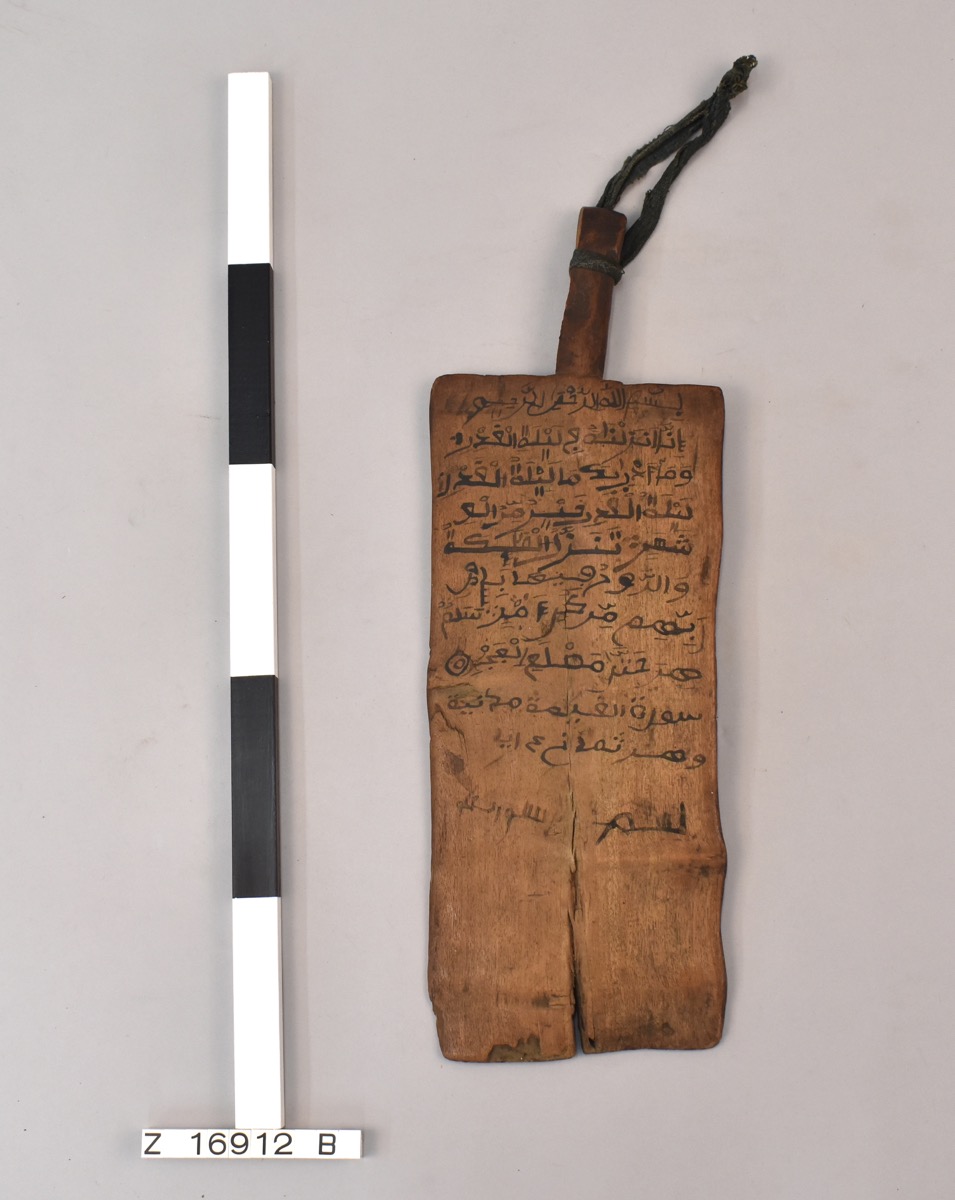 بِسْمِ اللَّهِ الرَّحْمَٰنِ الرَّحِيمِ
إِنَّا أَنزَلْنَٰهُ فِي لَيْلَةِ الْقَدْرِ
وَمَا أَدْرَيٰكَ مَا لَيْلَةُ الْقَدْرِ
لَيْلَةُ الْقَدْرِ خَيْرٌ مِّنْ أَلْفِ
شَهْرٍ تَنَزَّلُ الْمَلَٰئِكَةُ
وَالرُّوحُ فِيهَا بِإِذْنِ
رَبِّهِم مِّن كُلِّ أَمْرٍ سَلَٰمٌ
هِيَ حَتَّىٰ مَطْلَعِ الْفَجْرِ
سورة القيمة مدنية
وهي ايا
بسم بسم الله
Z 16912 B